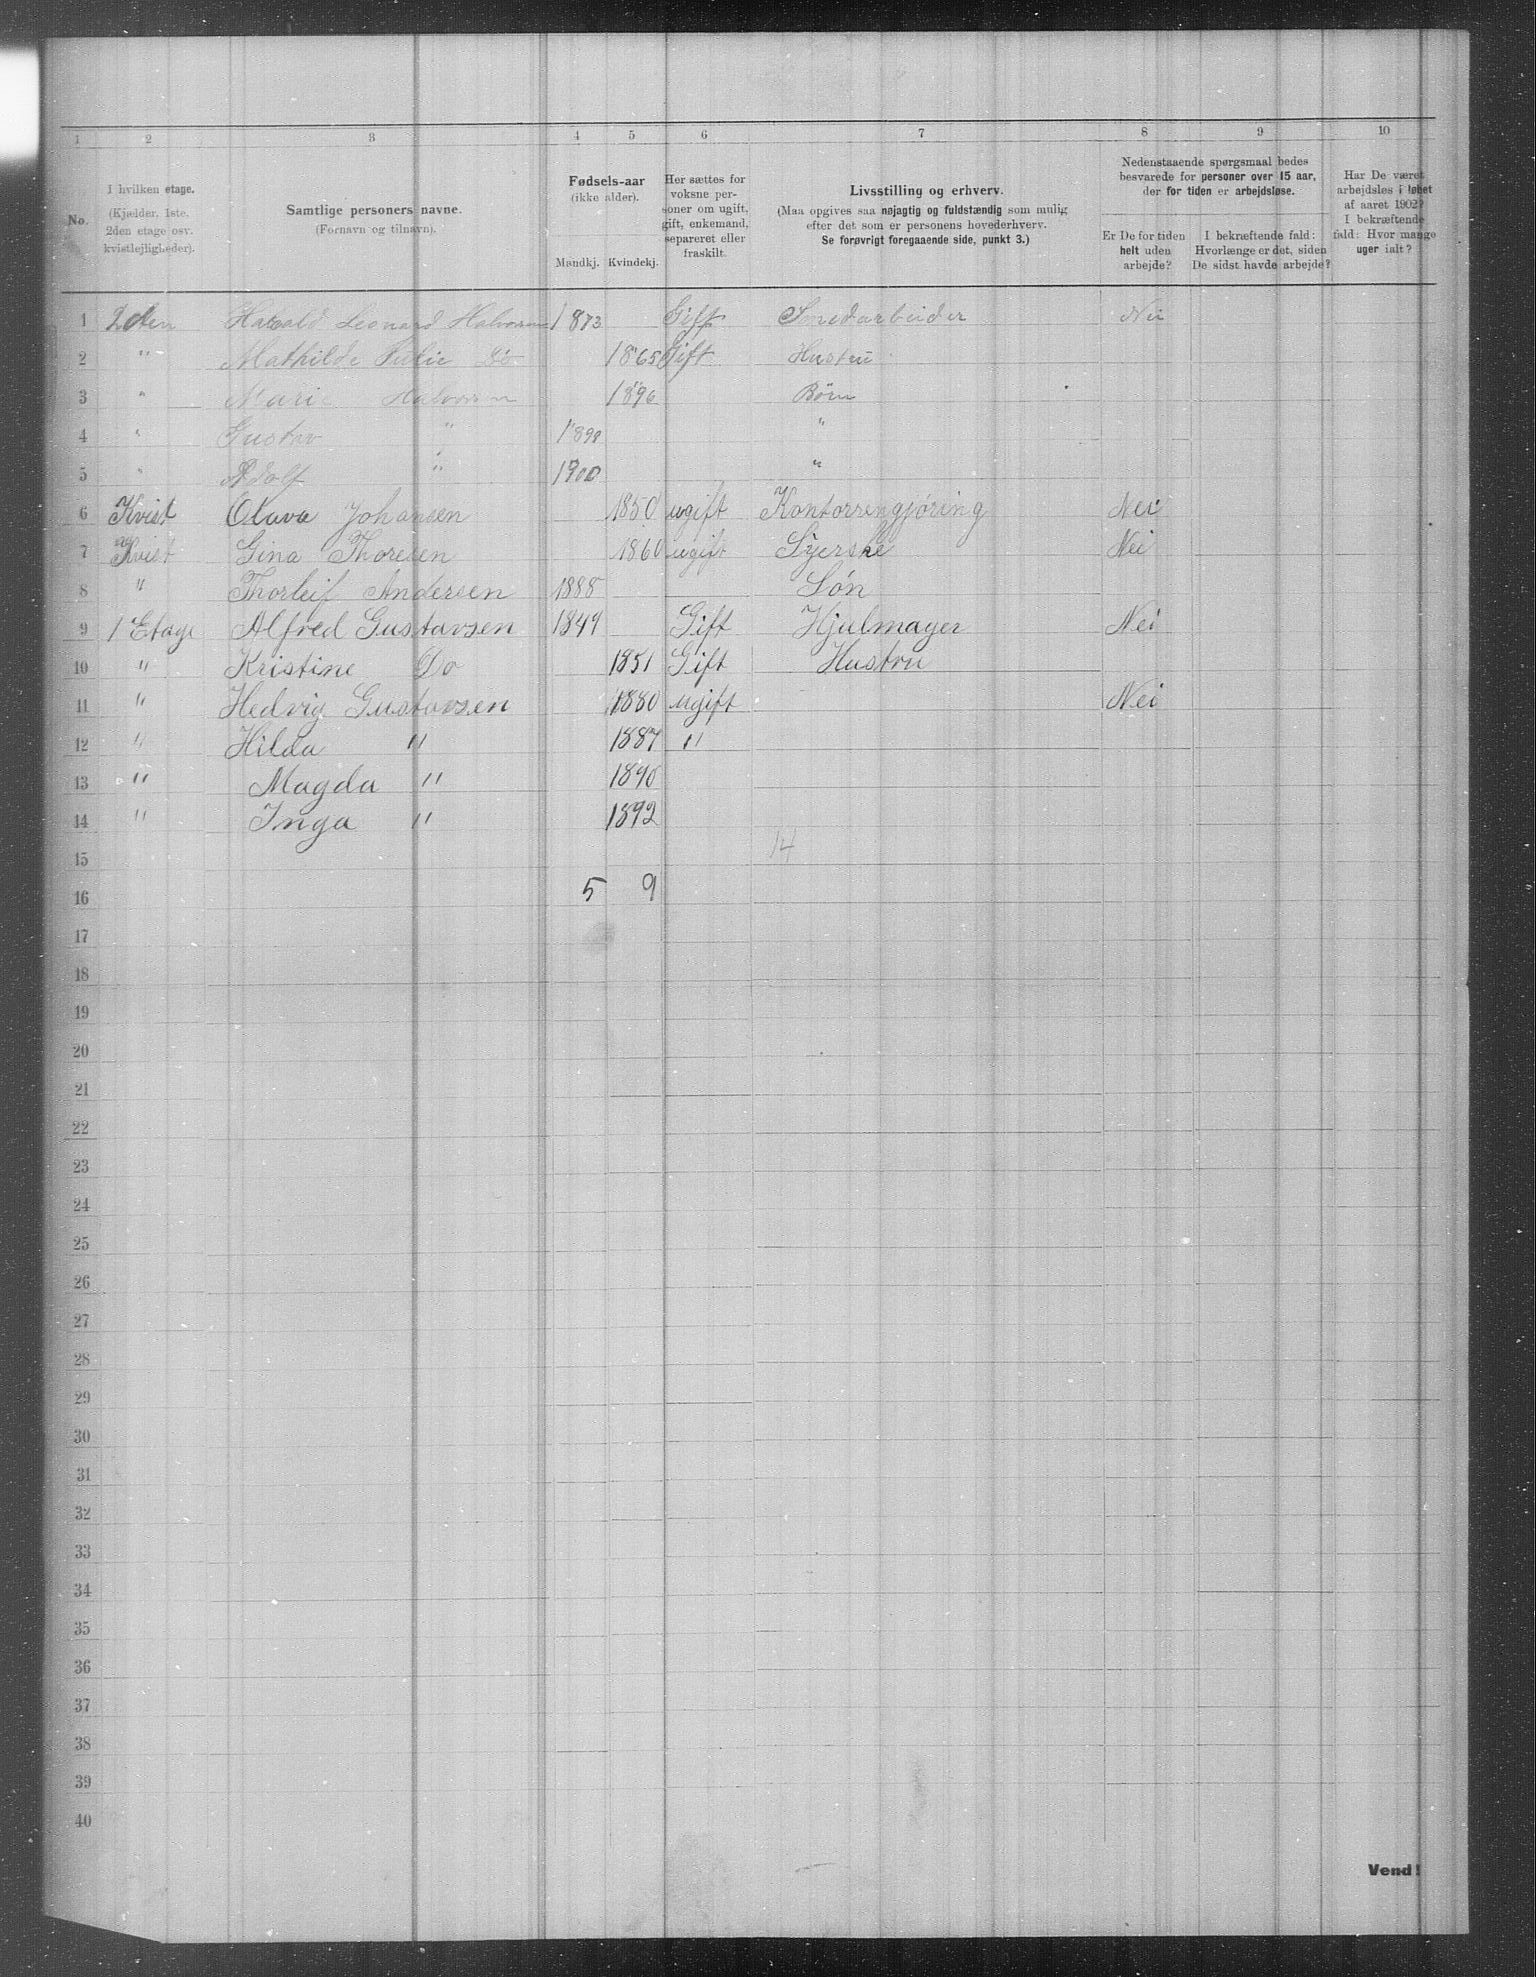 1 2 3 4 5 6 7 8 9 10
No.
I hvilken etage.
(Kjælder, 1ste,
2den etage osv.
kvistlejligheder).
Samtlige personers navne.
(Fornavn og tilnavn).
Fødsels-aar
(ikke alder).
Mandkj. Kvindekj.
Her sættes for
voksne per-
soner om ugift,
gift, enkemand,
separeret eller
fraskilt.
Livsstilling og erhverv.
(Maa opgives saa nøjagtig og fuldstændig som mulig
efter det som er personens hovederhverv.
Se forøvrigt foregaaende side, punkt 3.)
Nedenstaaende spørgsmaal bedes
besvarede for personer over 15 aar,
der for tiden er arbejdsløse.
Er De for tiden
helt uden
arbejde?
I bekræftende fald:
Hvorlænge er det, siden
De sidst havde arbejde?
Har De været
arbejdsløs i løbet
af aaret 1902?
I bekræftende
fald: Hvor mange
uger ialt?
1 2den Harald Leonard Halvorsen 1873 Gift Smedarbeider Nei
2 " Mathilde Julie Do 1865 Gift Hustru
3 " Marie Halvorsen 1896 Børn
4 " Gustav " 1898 "
5 " Adolf " 1900 "
6 Kvist Olava Johansen 1850 ugift Kontorrengjøring Nei
7 Kvist Gina Thoresen 1860 ugift Syerske Nei
8 " Thorleif Andersen 1888 Søn
9 1 Etage Alfred Gustavsen 1849 Gift Hjulmager Nei
10 " Kristine Do 1851 Gift Hustru
11 " Hedvig Gustavsen 1880 ugift Nei
12 " Hilda " 1887 "
13 " Magda " 1890
14 " Inga " 1892
14
15
16 5 9
17
18
19
20
21
22
23
24
25
26
27
28
29
30
31
32
33
34
35
36
37
38
39
40
Vend!